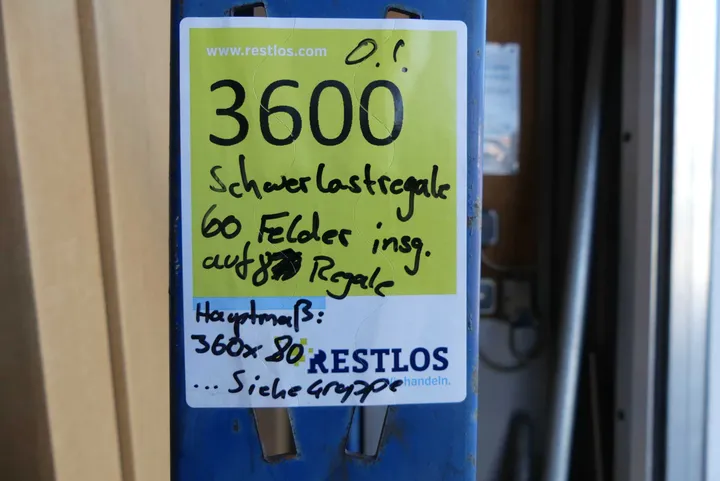 www.restlos.com
O.!.
3600
Schwerlastregale
60 Felder insg.
auf 8 Regale
Hauptmaß:
360x80
RESTLOS
handeln.
... Siehe Gruppe